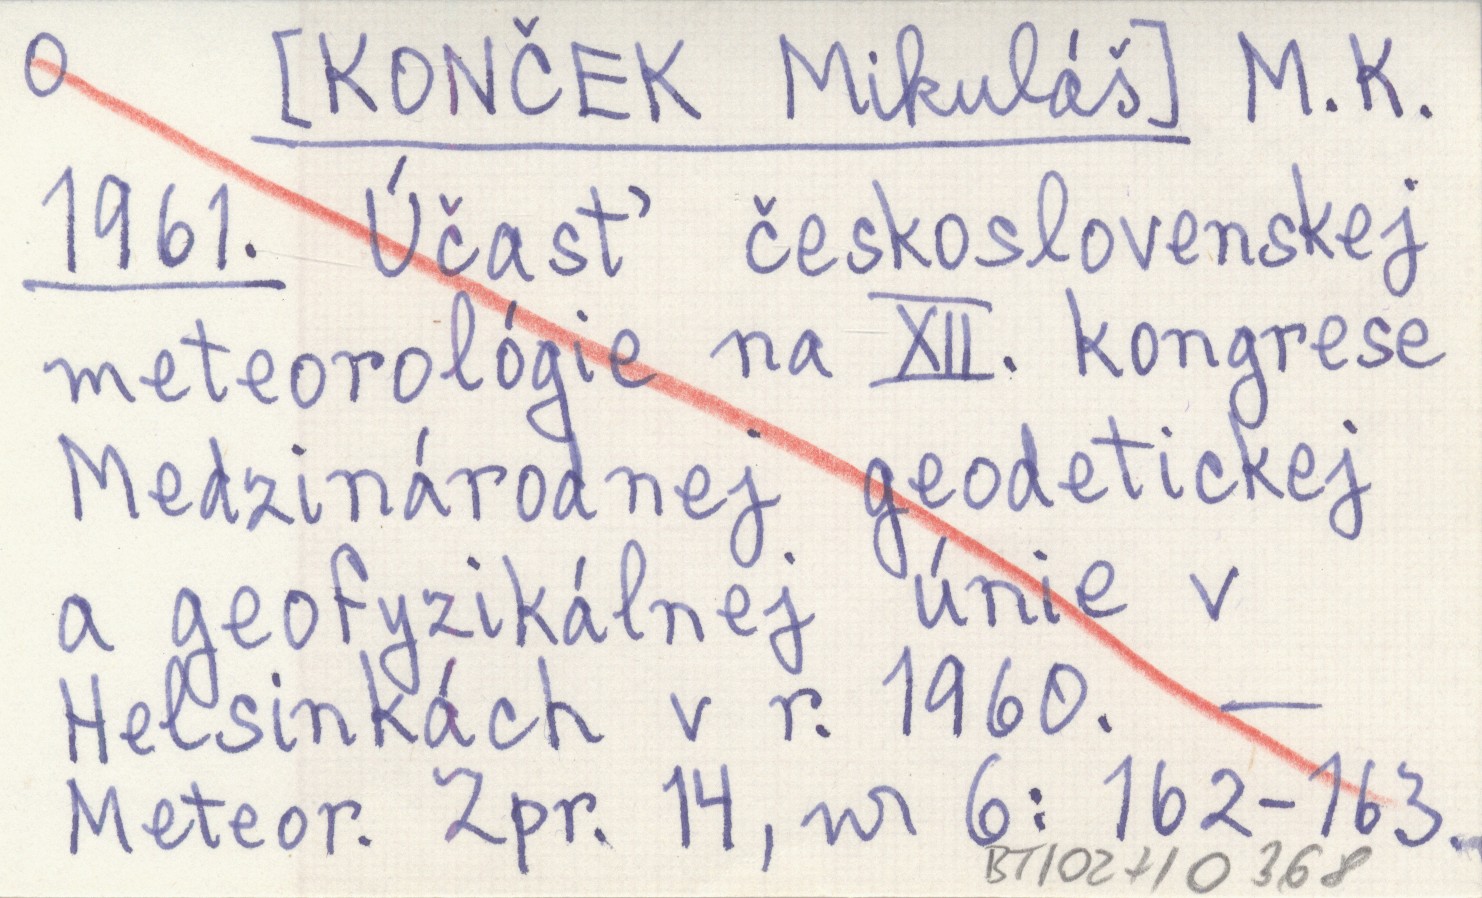 O [KONČEK Mikuláš] M.K.
1961. Účasť československej
meteorológie na XII. kongrese
Medzinárodnej geodetickej
a geofyzikálnej únie v
Helsinkách v r. 1960. —
Meteor. Zpr. 14, nr 6: 162-163.
0368